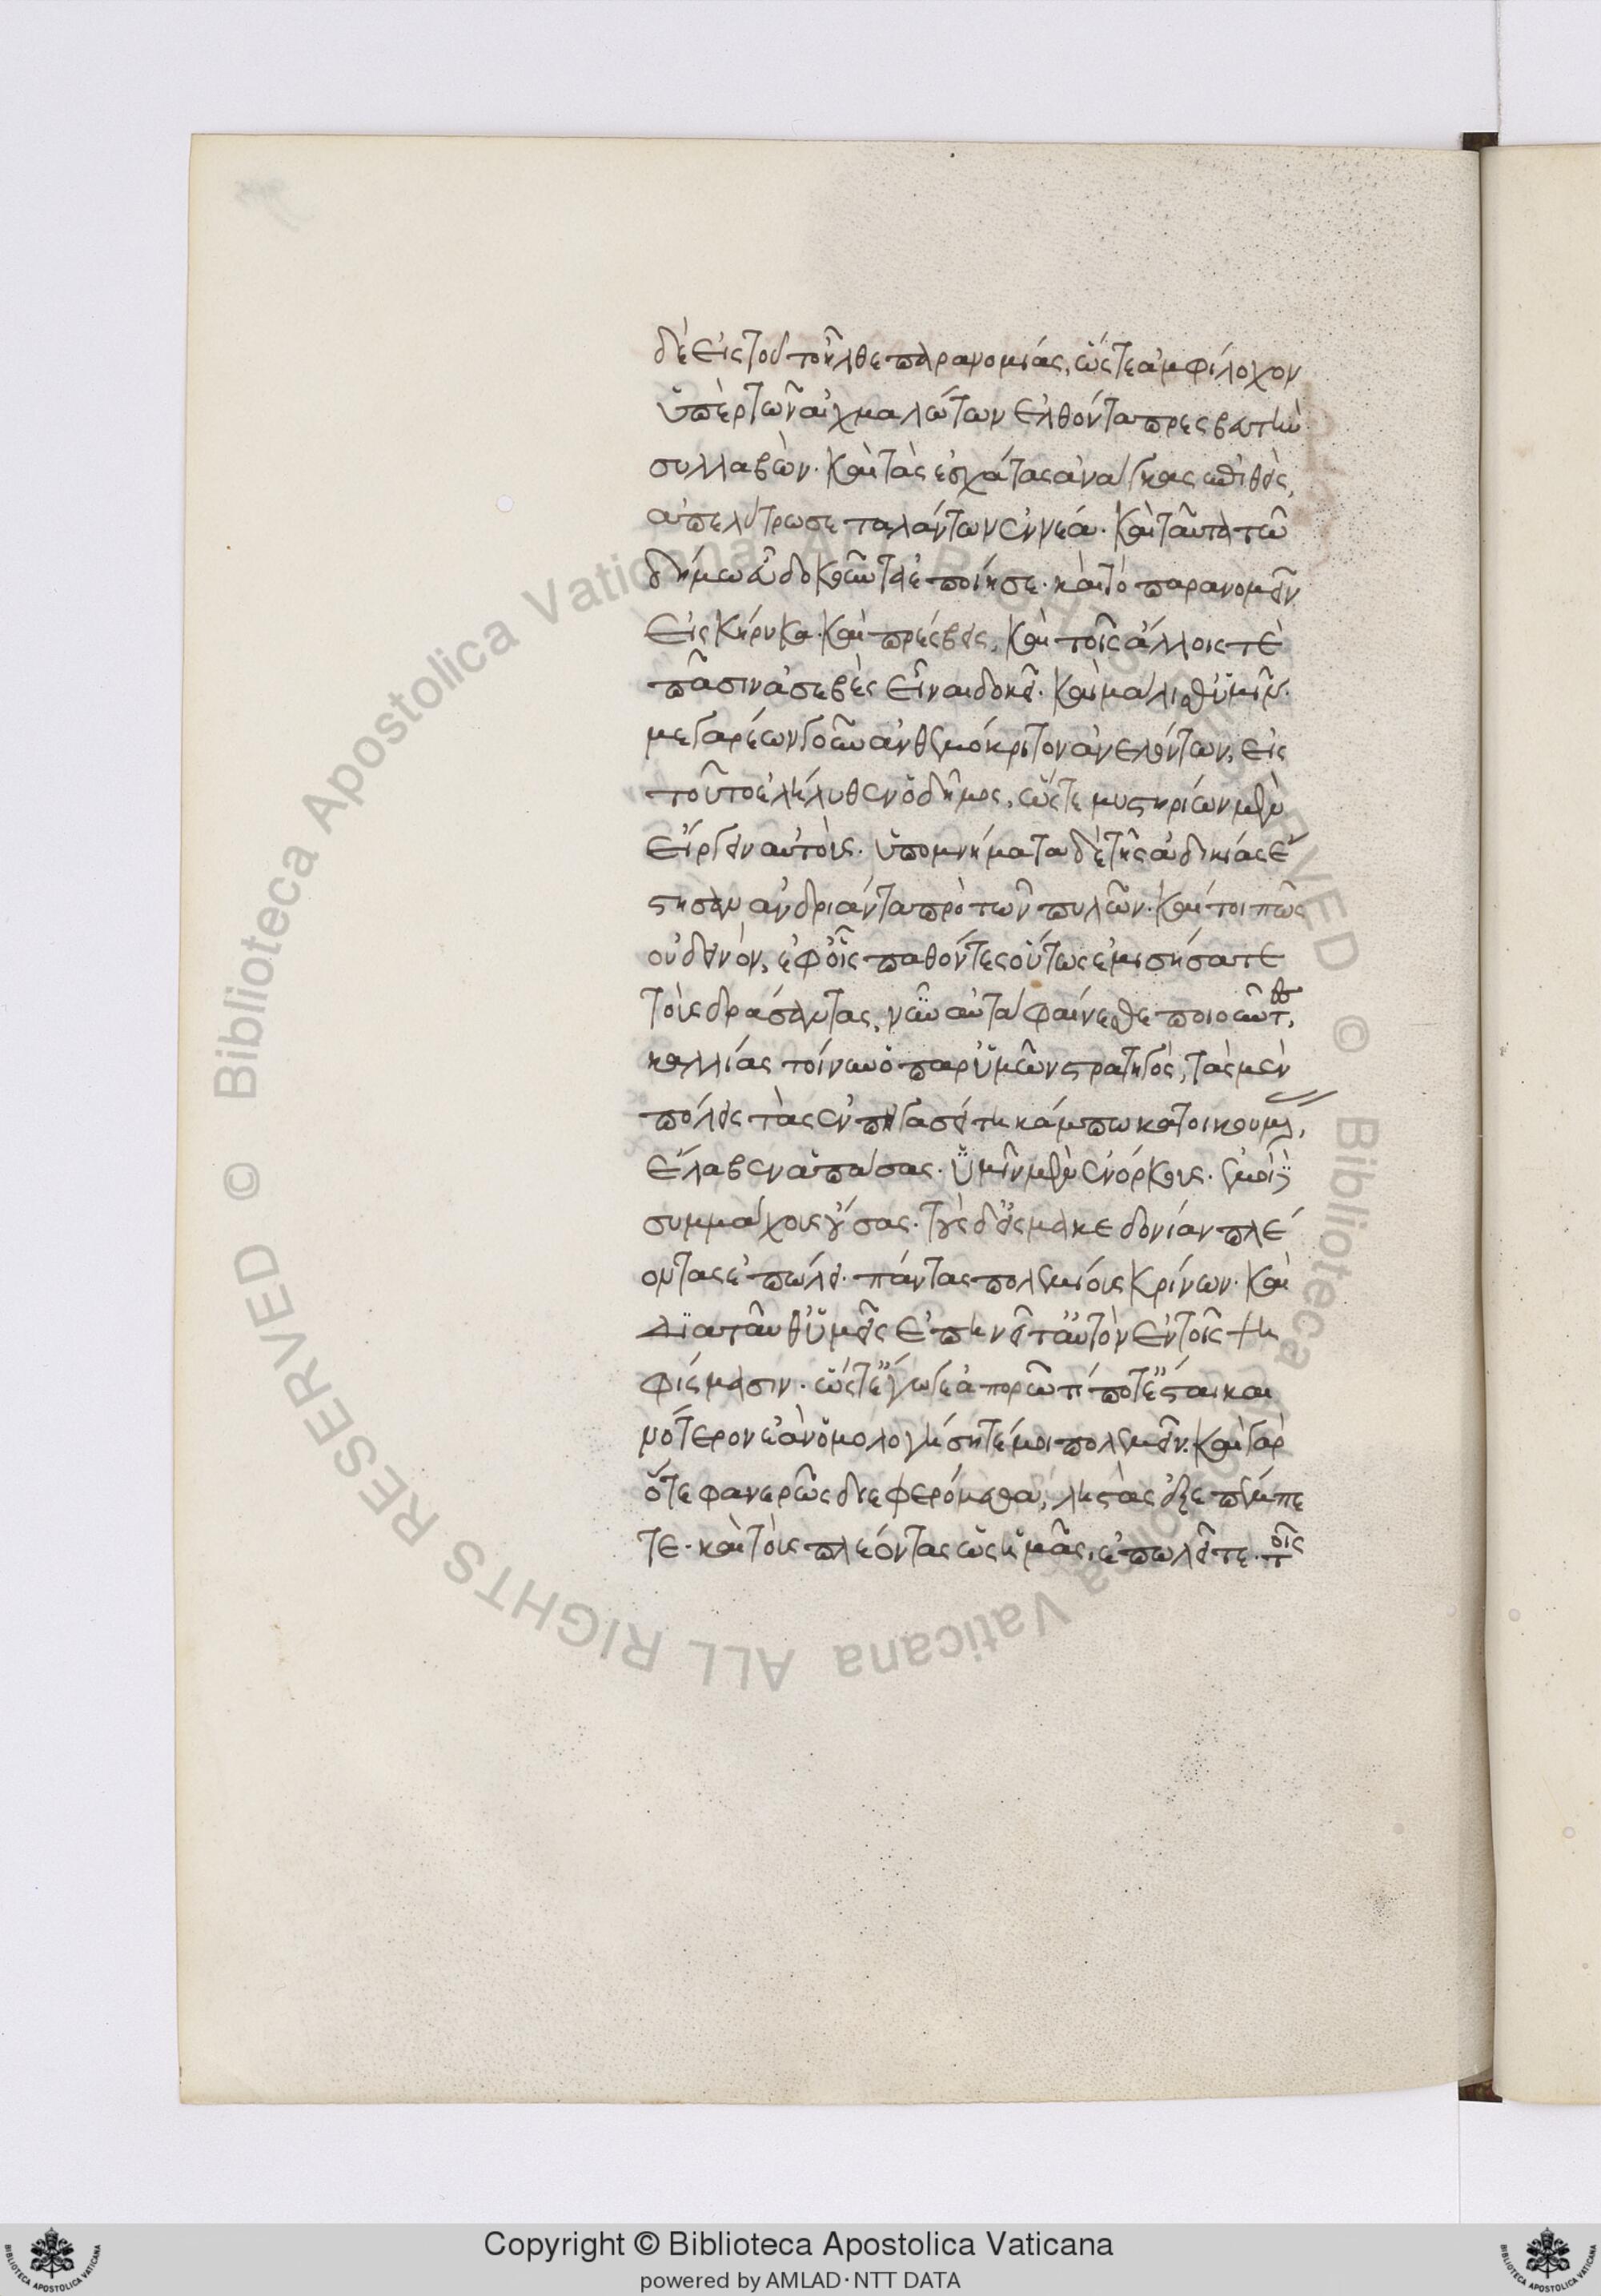 δὲ εἰς τοῦτο ἦλθε παρανομίας, ὥστε ἀμφίλοχον
ὑπὲρ τῶν αἰχμαλώτων ἐλθόντα πρεσβευτὴν
συλλαβὼν. καὶ τὰς ἐσχάτας ἀνάγκας ἐπιθεὶς,
ἀπελύτρωσε ταλάντων ἐννέα. καὶ ταῦτα τῶ
δήμω συνδοκοῦντα ἐποίησε. καὶ τὸ παρανομεῖν
εἰς κήρυκα. καὶ πρέσβεις, καὶ τοῖς ἄλλοις τὲ
πᾶσιν ἀσεβὲς εἶναι δοκεῖ. καὶ μάλισθ' ὑμῖν.
μεγαρέων γοῦν ἀνθεμόκριτον ἀνελόντων, εἰς
τοῦτο ἐλήλυθεν ὁ δῆμος, ὥστε μυστηρίων μὲν
εἴργειν αὐτούς. ὑπομνήματα δὲ τῆς ἀδικίας ἔ
στησαν ἀνδριάντα πρὸ τῶν πυλῶν. καί τοι πῶς
οὐ δεινόν, ἐφ' οἷς παθόντες οὕτως ἐμισήσατε
τοὺς δράσαντας, νῦν αὐτὰ φαίνεσθε ποιοῦντες,
καλλίας τοίνυν ὁ παρ' ὑμῶν στρατηγὸς, τὰς μὲν
πόλεις τὰς ἐν παγασείτη κάμπω κατοικουμένας,
ἔλαβεν ἁπάσας. ὑμῖν μὲν ἐνόρκους. ἐμοὶ δὲ
συμμαχούσας. τοὺς δ' εἰς μακεδονίαν πλέ
οντας ἐπώλει. πάντας πολεμίους κρίνων. καὶ
διὰ ταῦθ' ὑμεῖς ἐπηνεῖτ' αὐτὸν ἐν τοῖς ψη
φίσμασιν. ὥστ' ἔγωγε ἀπορῶ τί ποτ' ἔσται και
νότερον ἐὰν ὁμολογήσητέ μοι πολεμεῖν. καὶ γὰρ
ὅτε φανερῶς διεφερόμεθα, ληστὰς ἐξεπέμπε
τε. καὶ τοὺς πλέοντας ὡς ἡμᾶς, ἐπωλεῖτε. τοῖς
Copyright © Biblioteca Apostolica Vaticana
powered by AMLAD·NTT DATA